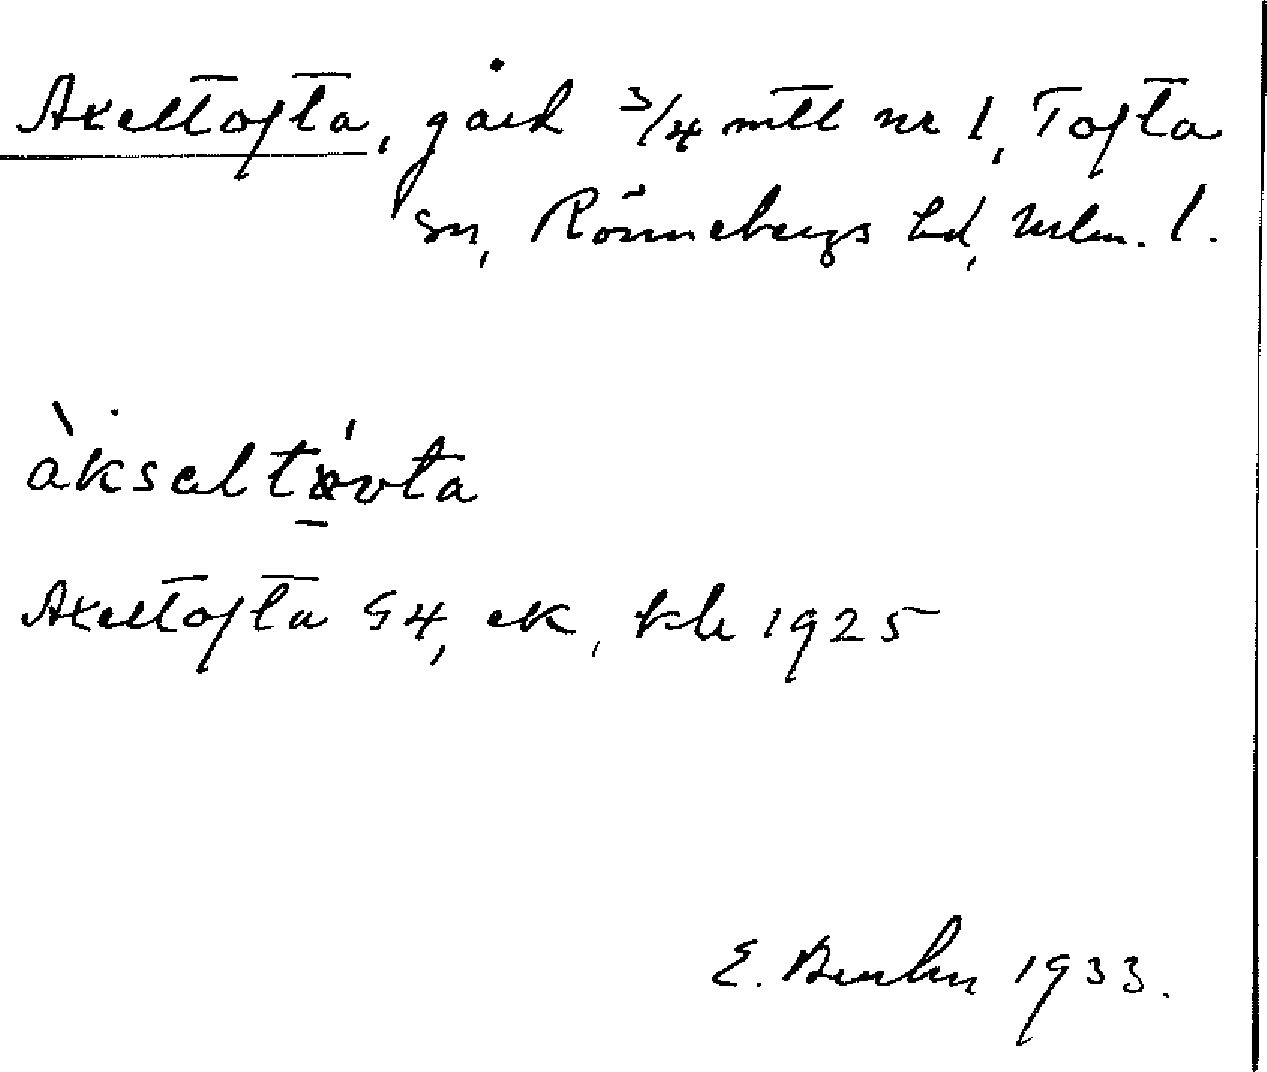 Axeltofta, gård 3/4 mtl nr 1, Tofta
sn, Rönnebergs hd, Mlm. l.
àkseltovta
Axeltofta G4, ek, kb 1925
E. 1933.